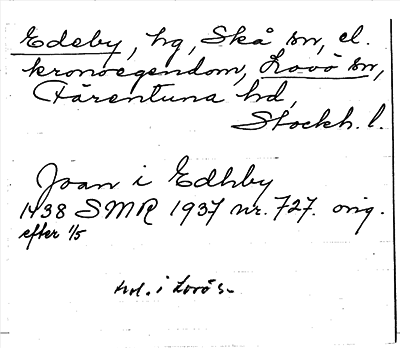 Edeby, hg, Skå sn, el.
kronoegendom, Lovö sn,
Färentuna hd,
Stockh. l.
Joan i Edhby
1438 SMR 1937 nr. 727. orig.
efter 1/5
i Lovö s.